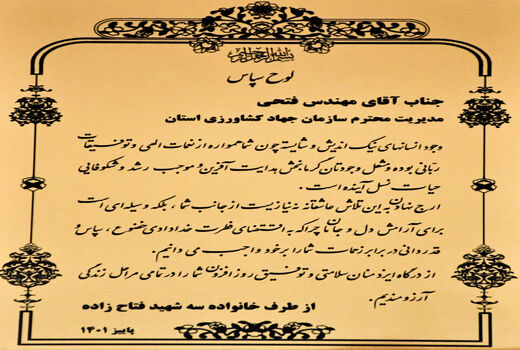 بسم الله الرحمن الرحیم
لوح سپاس
جناب آقای مهندس فتحی
مدیریت محترم سازمان جهاد کشاورزی استان
وجود انسانهای نیک اندیش و شایسته چون شما همواره از نعمات الهی و توفیقات
ربانی بوده و مشعل وجودتان گرمابخش هدایت آفرین و موجب رشد و شکوفایی
حیات نسل آینده است.
ارج نهادن به این تلاش عاشقانه نه نیاز یست از جانب شما، بلکه وسیله ای است
برای آرامش دل و جانمان چرا که به اقتضای فطرت خدادادی خضوع، سپاس و
قدردانی در برابر زحمات شما را بر خود واجب می دانیم.
از درگاه ایزد منان سلامتی و توفیق روز افزون شما را در تمامی مراحل زندگی
آرزومندیم.
از طرف خانواده سه شهید فتاح زاده
پاییز ۱۴۰۱